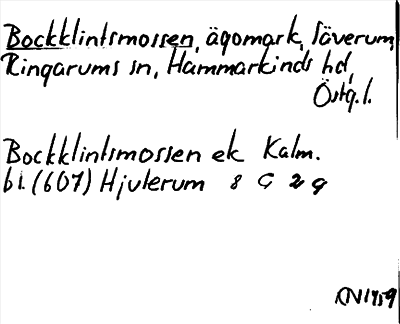 Bockklintsmossen, ägomark, Säverum,
Ringarums sn, Hammarkinds hd,
Östg.l.
Bockklintsmossen ek Kalm.
bl. (607) Hjulerum 8 G 2 g
KN1959